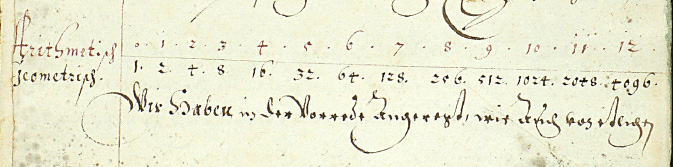 Arithmetisch 0 · 1 · 2 · 3 · 4 · 5 · 6 · 7 · 8 · 9 · 10 · 11 · 12 ·
geometrisch · 1 · 2 · 4 · 8 · 16 · 32 · 64 · 128 · 256 · 512 · 1024 · 2048 · 4096 ·
Wir Haben in der Vorrede Angeregt, wie Auch von etlichen